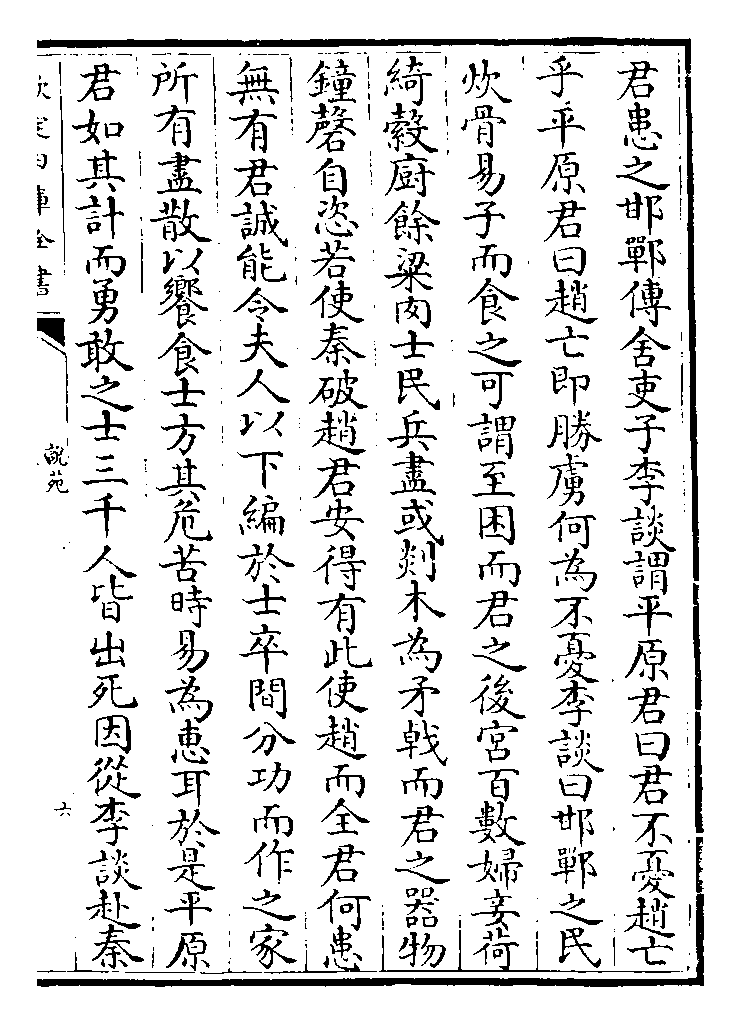 君患之邯鄲傳舍吏子李談謂平原君曰君不憂趙亡
乎平原君曰趙亡即勝虜何為不憂李談曰邯鄲之民
炊骨易子而食之可謂至困而君之後宮百數婦妾荷
綺縠廚餘粱肉士民兵盡或剡木為矛戟而君之器物
鐘磬自恣若使秦破趙君安得有此使趙而全君何患
無有君誠能令夫人以下編於士卒間分功而作之家
所有盡散以饗食士方其危苦時易為惠耳於是平原
君如其計而勇敢之士三千人皆出死因從李談赴秦
欽定四庫全書
說苑
六